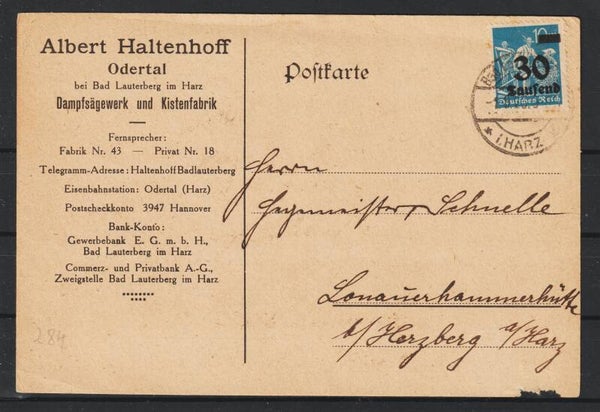 Albert Haltenhoff
Odertal
bei Bad Lauterberg im Harz
Dampfsägewerk und Kistenfabrik
Fernsprecher:
Fabrik Nr. 43 — Privat Nr. 18
Telegramm-Adresse: Haltenhoff Badlauterberg
Eisenbahnstation: Odertal (Harz)
Postscheckkonto 3947 Hannover
Bank-Konto:
Gewerbebank E. G. m. b. H.,
Bad Lauterberg im Harz
Commerz- und Privatbank A.-G.,
Zweigstelle Bad Lauterberg im Harz
284
Postkarte
10
30
Tausend
Deutsches Reich
* i. HARZ
Herrn
Hegemeister Schnelle
Lonauerhammerhütte
b/Herzberg a/Harz